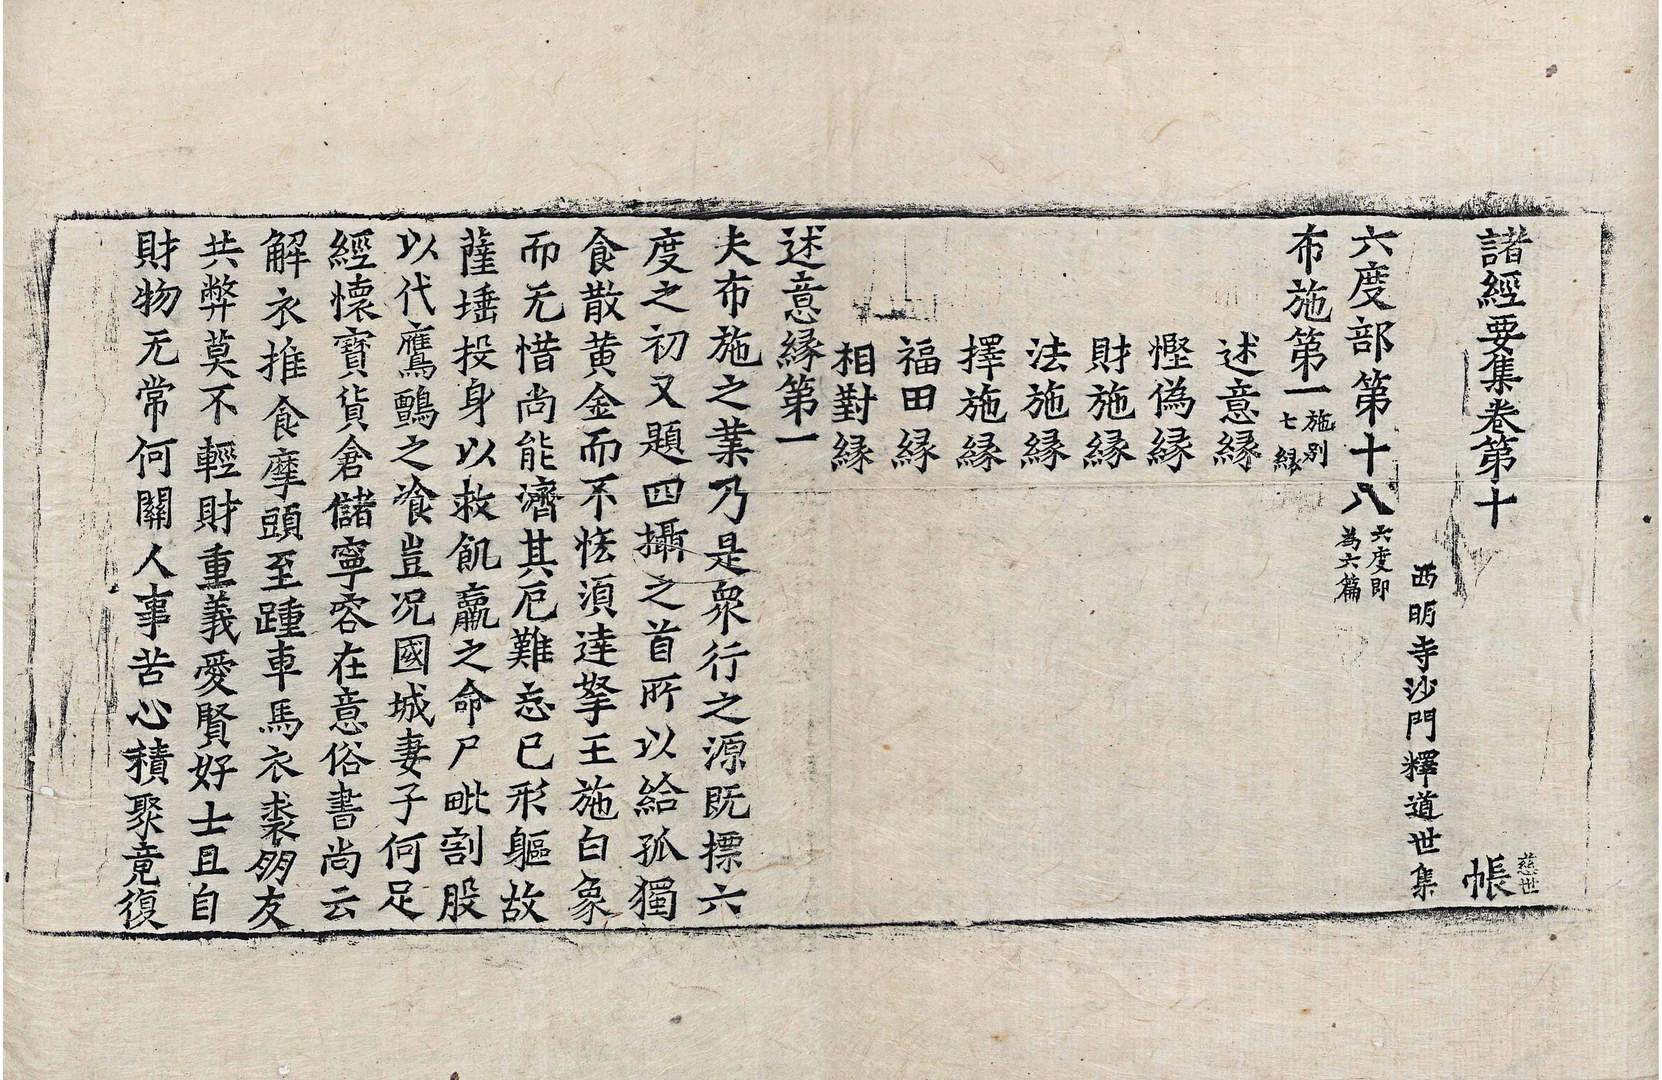 諸經要集卷第十 帳 慈世
西明寺沙門釋道世集
六度部第十八 六度即為六篇
布施第一 施別七緣
述意緣
慳偽緣
財施緣
法施緣
擇施緣
福田緣
相對緣
述意緣第一
夫布施之業乃是衆行之源既摽六
度之初又題四攝之首所以給孤獨
食散黄金而不恡湏逹拏王施白象
而无惜尚能濟其厄難忘已形軀故
薩埵投身以救飢羸之命尸毗割股
以代鷹鸇之飡豈况國城妻子何足
經懷寶貨倉儲寧容在意俗書尚云
解衣推食摩頭至踵車馬衣裘朋友
共弊莫不輕財重義愛賢好士且自
財物无常何關人事苦心積聚竟復